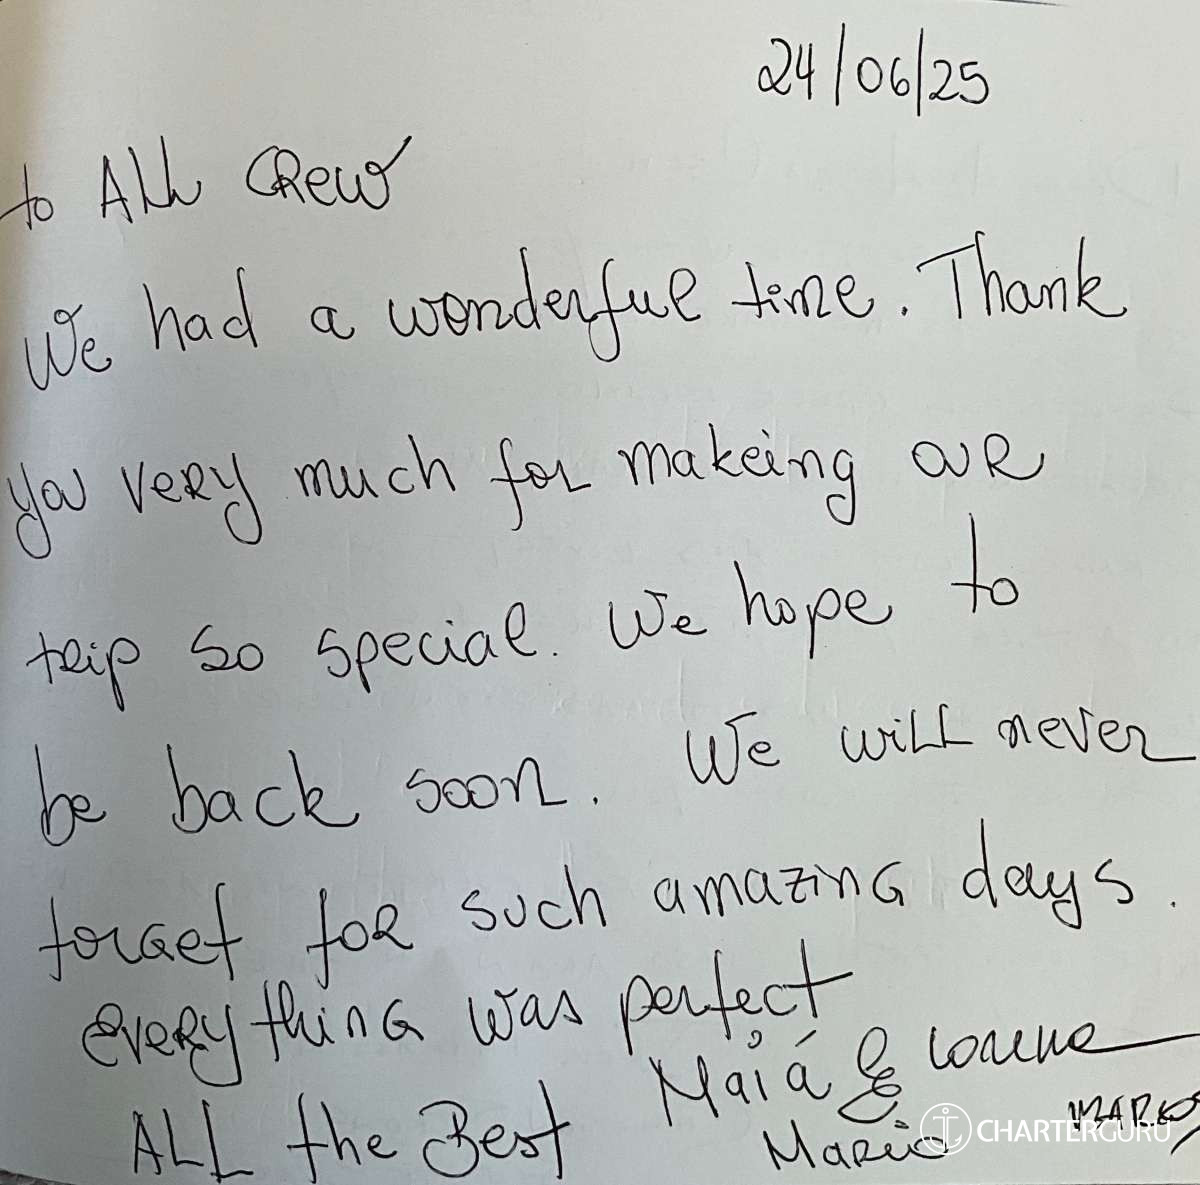 24/06/25
to ALL CREW
We had a wonderful time. Thank
you very much for makeing our
trip so special. We hope to
be back soon. We will never
forget for such amazing days.
everything was perfect
Maiá &
ALL the Best
Mario
MARKO
CHARTERGURU